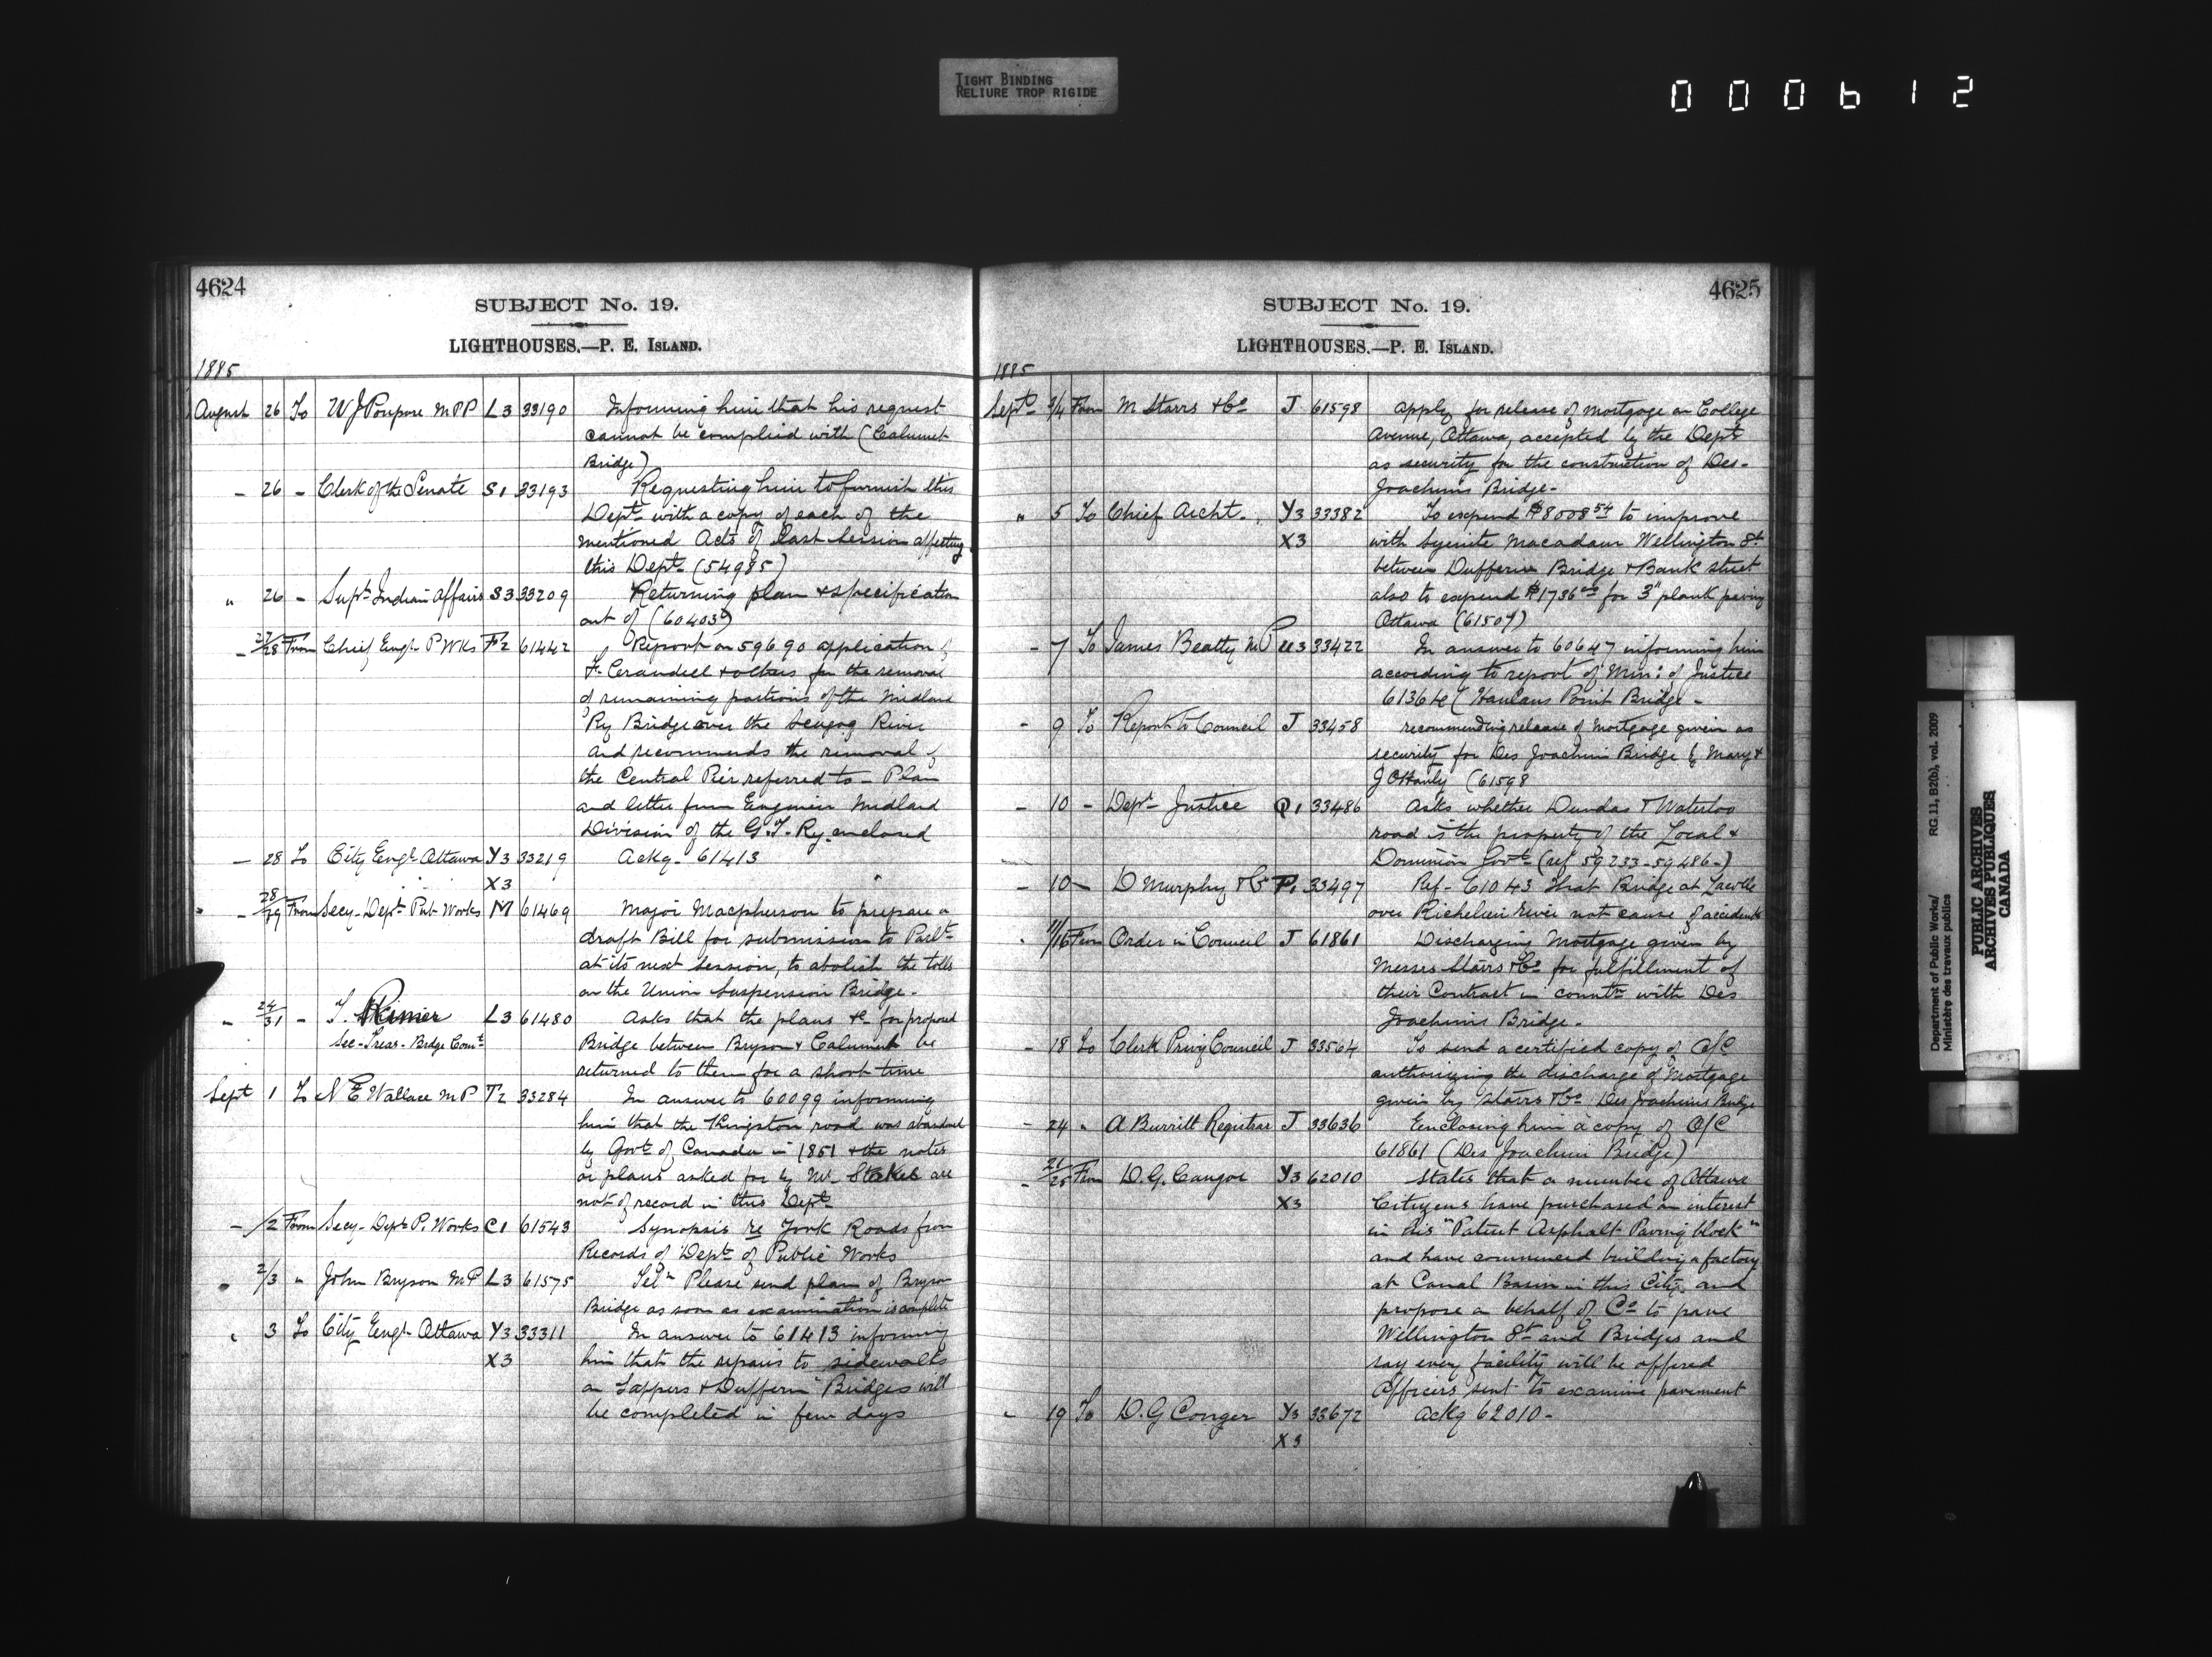 TIGHT BINDING
RELIURE TROP RIGIDE
000612
4624
SUBJECT No. 19.
LIGHTHOUSES.—P. E. ISLAND.
1885
August 26 To W J Poupore M P P L3 33190 Informing him that his request
cannot be complied with (Calumet
Bridge)
- 26 - Clerk of the Senate S1 33193 Requesting him to furnish this
Dept with a copy of each of the
mentioned Acts of last session affecting
this Dept (54985)
" 26 - Supt Indian Affairs S3 33209 Returning plan & specification
out of (60403)
- 27/28 From Chief Engr P Wks F2 61442 Report on 59690 application of
F. Crandell & others for the removal
of remaining portions of the Midland
Ry Bridge over the Scugog River
and recommends the removal of
the Central Pier referred to - Plan
and letter from Engineer Midland
Division of the G.T. Ry enclosed
- 28 To City Engr Ottawa Y3 33219 Ackg - 61413
X3
- 28/29 From Secy - Dept Pub Works M 61469 Major Macpherson to prepare a
draft Bill for submission to Parlt
at its next session, to abolish the tolls
on the Union Suspension Bridge.
" 24/31 - T. Rimer L3 61480 Asks that the plans &c for proposed
Sec - Treas - Bdge Comt Bridge between Bryson & Calumet be
returned to them for a short time
Sept 1 To N E Wallace M P T2 33284 In answer to 60099 informing
him that the Kingston road was abandoned
by Govt of Canada in 1851 & the notes
or plans asked for by Mr Stokes are
not of record in this Dept
- /2 From Secy - Dept P. Works C1 61543 Synopsis re York Roads from
Records of Dept of Public Works
2/3 " John Bryson M P L3 61575 Telm Please send plan of Bryson
Bridge as soon as examination is complete
" 3 To City Engr Ottawa Y3 33311 In answer to 61413 informing
X3 him that the repairs to sidewalks
on Sappers & Dufferin Bridges will
be completed in few days
4625
SUBJECT No. 19.
LIGHTHOUSES.—P. E. ISLAND.
1885
Sept 3/4 From M Starrs & Co J 61598 apply for release of mortgage on College
Avenue, Ottawa, accepted by the Dept
as security for the construction of Des-
Joachims Bridge -
" 5 To Chief Archt. Y3 33382 To expend $8008 54 to improve
X3 with Syenite Macadam Wellington St
between Dufferin Bridge & Bank street
also to expend $1736 for 3" plank paving
Ottawa (61507)
- 7 To James Beatty M P U3 33422 In answer to 60647 informing him
according to report of Min: of Justice
61364 (Hanlans Point Bridge -
- 9 To Report to Council J 33458 recommending release of mortgage given as
security for Des Joachim Bridge by Mary &
J O'Hanly (61598
- 10 - Dept Justice Q1 33486 Asks whether Dundas & Waterloo
road is the property of the Local &
Dominion Govts (ref 59233 - 59486 -)
- 10 - D Murphy & Co P1 33497 Ref - 61043 that Bridge at Lacolle
over Richelieu river not cause of accidents
" 11/16 From Order in Council J 61861 Discharging Mortgage given by
Messrs Starrs & Co for fulfillment of
their Contract in countn with Des
Joachims Bridge -
- 18 To Clerk Privy Council J 33564 To send a certified copy of O/C
authorizing the discharge of Mortgage
given by Starrs & Co Des Joachims Bridge
- 24 " A Burritt Registrar J 33636 Enclosing him a copy of O/C
61861 (Des Joachim Bridge)
- 21/25 From D. G. Cangor Y3 62010 States that a number of Ottawa
X3 Citizens have purchased an interest
in his "Patent Asphalt Paving block"
and have commenced building a factory
at Canal Basin in this City and
propose on behalf of Co to pave
Wellington St and Bridges and
say every facility will be offered
Officers sent to examine pavement
19 To D. G Conger Y3 33672 ackg 62010 -
X3
Department of Public Works/
Ministère des travaux publics
RG 11, B2(b), vol. 2009
PUBLIC ARCHIVES
ARCHIVES PUBLIQUES
CANADA